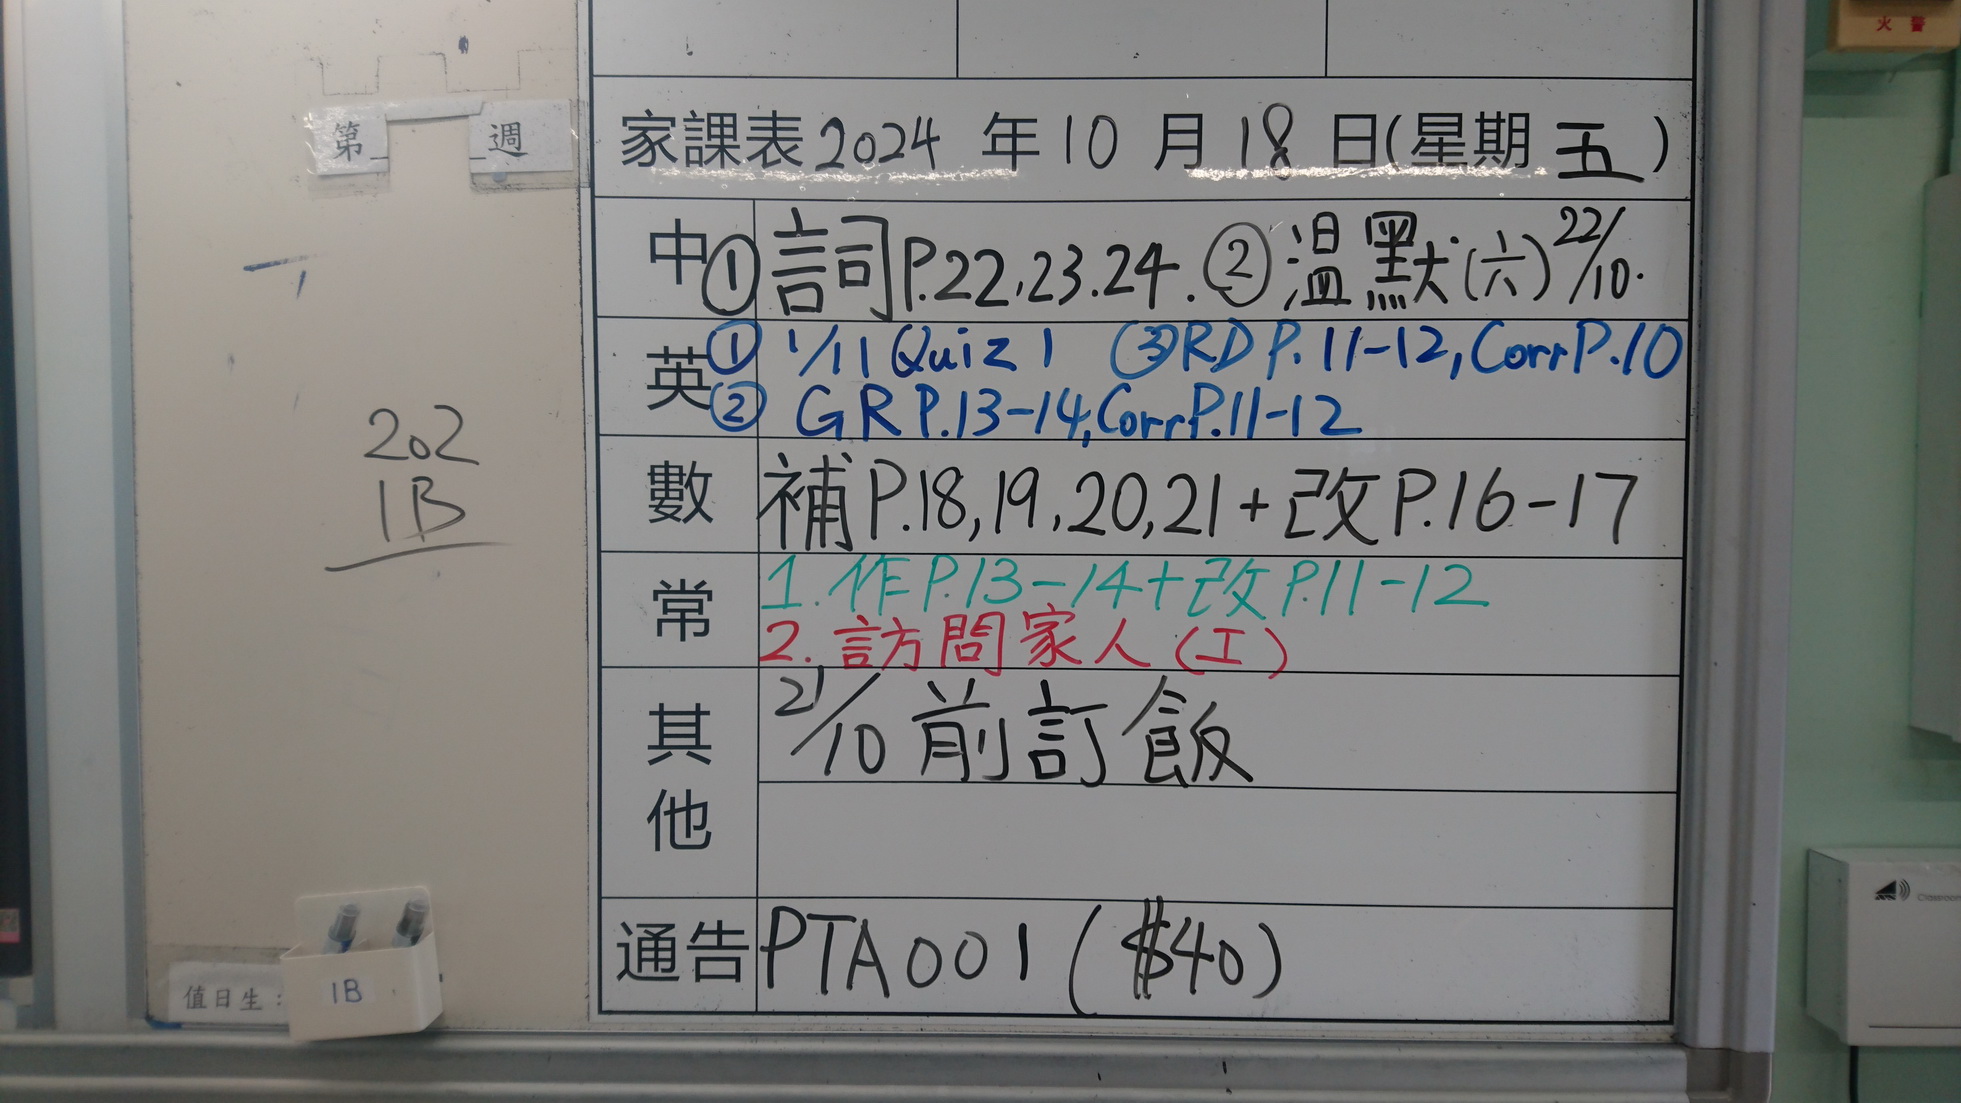 火警
第 週
家課表 2024 年 10 月 18 日(星期 五)
中 ① 詞P.22,23.24. ② 温默(六) 22/10.
英 ① 1/11 Quiz 1 ③ RD P.11-12, Corr P.10
② GR P.13-14, Corr P.11-12
202
1B
數 補P.18,19,20,21+改P.16-17
常 1. 作P.13-14+改P.11-12
2. 訪問家人(工)
其他 21/10 前訂飯
通告 PTA001 ($40)
值日生：
1B